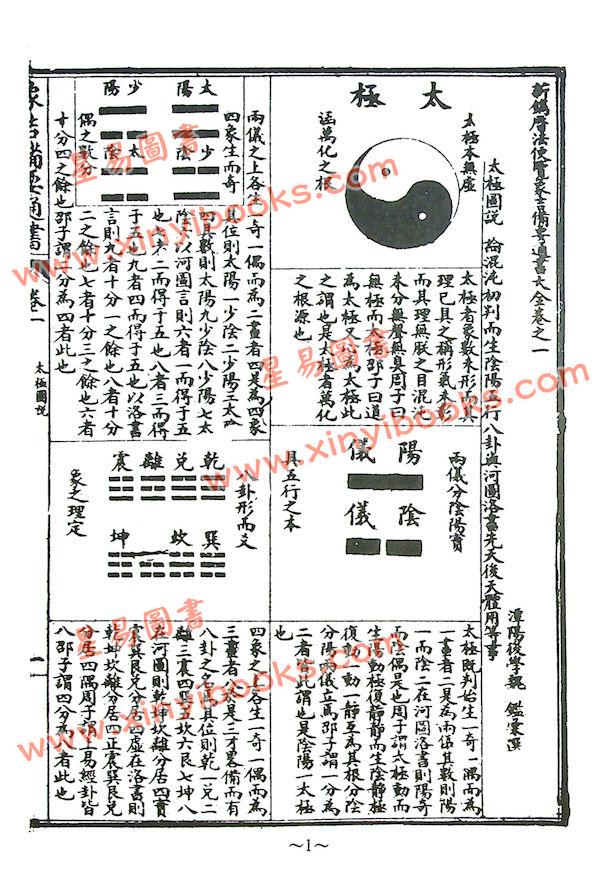 新鐫曆法便覽象吉備要通書大全卷之一
潭陽後學魏 鑑彙選
太極圖說 論混沌初判而生陰陽五行八卦與河圖洛書先天後天體用等事
太極
太極本無虛
涵萬化之根
太極者象數未形而其
理已具之稱形氣未彰
而其理無朕之目混沌
未分無聲無臭周子曰
無極而太極邵子曰道
為太極又心為太極此
之謂也是太極者萬化
之根源也
陽儀
陰儀
兩儀分陰陽實
具五行之本
太極既判始生一奇一偶而為
一畫者二是為兩儀其數則陽
一而陰二在河圖洛書則陽奇
而陰偶是也周子謂太極動而
生陽動極復靜靜而生陰靜極
復動一動一靜互為其根分陰
分陽兩儀立焉邵子謂一分為
二者皆此謂也是陰陽一太極
也
太陽 少陰
少陽 太陰
四象生而奇
偶之數分
兩儀之上各生一奇一偶而為二畫者四是為四象
其位則太陽一少陰二少陽三太陰
四其數則太陽九少陰八少陽七太
陰六以河圖言則六者一而得于五
也七者二而得于五也八者三而得
于五也九者四而得于五也以洛書
言則九者十分一之餘也八者十分
二之餘也七者十分三之餘也六者
十分四之餘也邵子謂二分為四者此也
乾 兌 離 震
巽 坎 坤
八卦形而爻
象之理定
四象之上各生一奇一偶而為
三畫者八於是三才畧備而有
八卦之名其位則乾一兌二
離三震四巽五坎六艮七坤八
在河圖則乾坤坎離分居四實
震巽艮兌分居四虛在洛書則
乾坤坎離分居四正震巽艮兌
分居四隅周子謂上易經卦皆
八邵子謂四分為八者此也
象吉備要通書 卷一 太極圖說 一
~1~
星易圖書
www.xinyibooks.com
星易圖書
www.xinyibooks.com
星易圖書
www.xinyibooks.com
星易圖書
www.xinyibooks.com